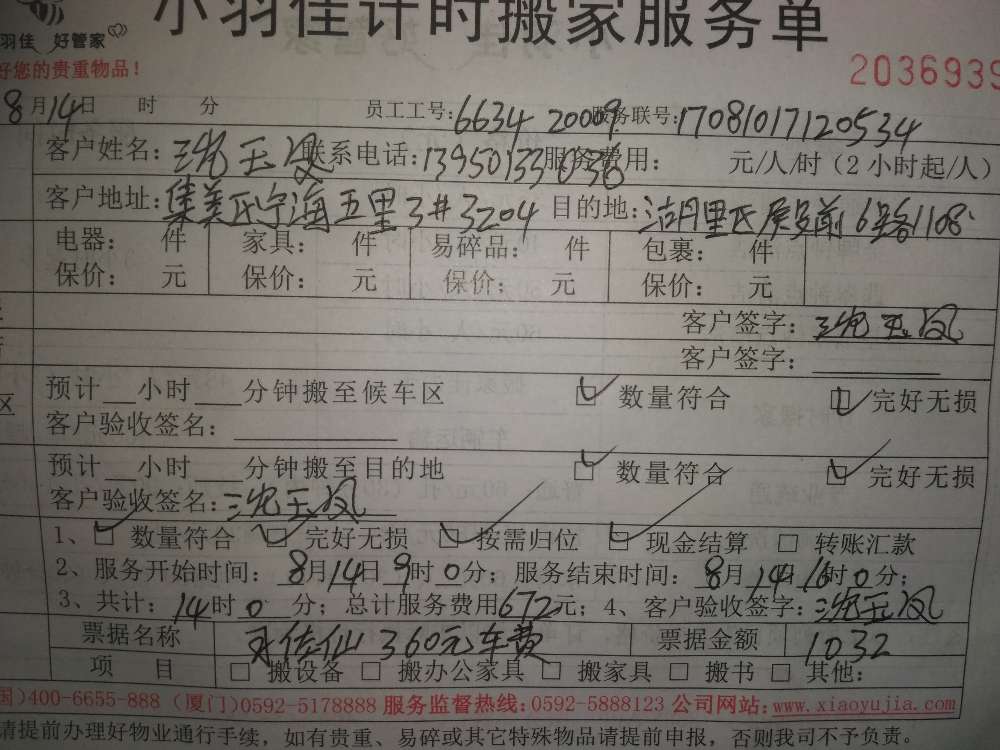 小羽佳计时搬家服务单
羽佳 好管家
好您的贵重物品！
2036939
8月14日 时 分 员工工号：6634 20009 服务联号：17081017120534
客户姓名：沈玉凤 联系电话：13950133036 服务费用： 元/人/时（2小时起/人）
客户地址：集美区宁海五里3#3204 目的地：湖里区殿前6路1108
电器： 件 家具： 件 易碎品： 件 包裹： 件
保价： 元 保价： 元 保价： 元 保价： 元
客户签字：沈玉凤
客户签字：
区 预计__小时___分钟搬至候车区 数量符合 完好无损
客户验收签名：
预计__小时___分钟搬至目的地 数量符合 完好无损
客户验收签名：沈玉凤
1、数量符合 完好无损 按需归位 现金结算 □ 转账汇款
2、服务开始时间：8月14日9时0分；服务结束时间：8月14日16时0分；
3、共计：14时0分；总计服务费用672元；4、客户验收签字：沈玉凤
票据名称 360元车费 票据金额 1032
项 目 □ 搬设备 □ 搬办公家具 □ 搬家具 □ 搬书 □ 其他：
国)400-6655-888（厦门)0592-5178888 服务监督热线:0592-5888123 公司网站:www.xiaoyujia.com
请提前办理好物业通行手续，如有贵重、易碎或其它特殊物品请提前申报，否则我司不予负责。